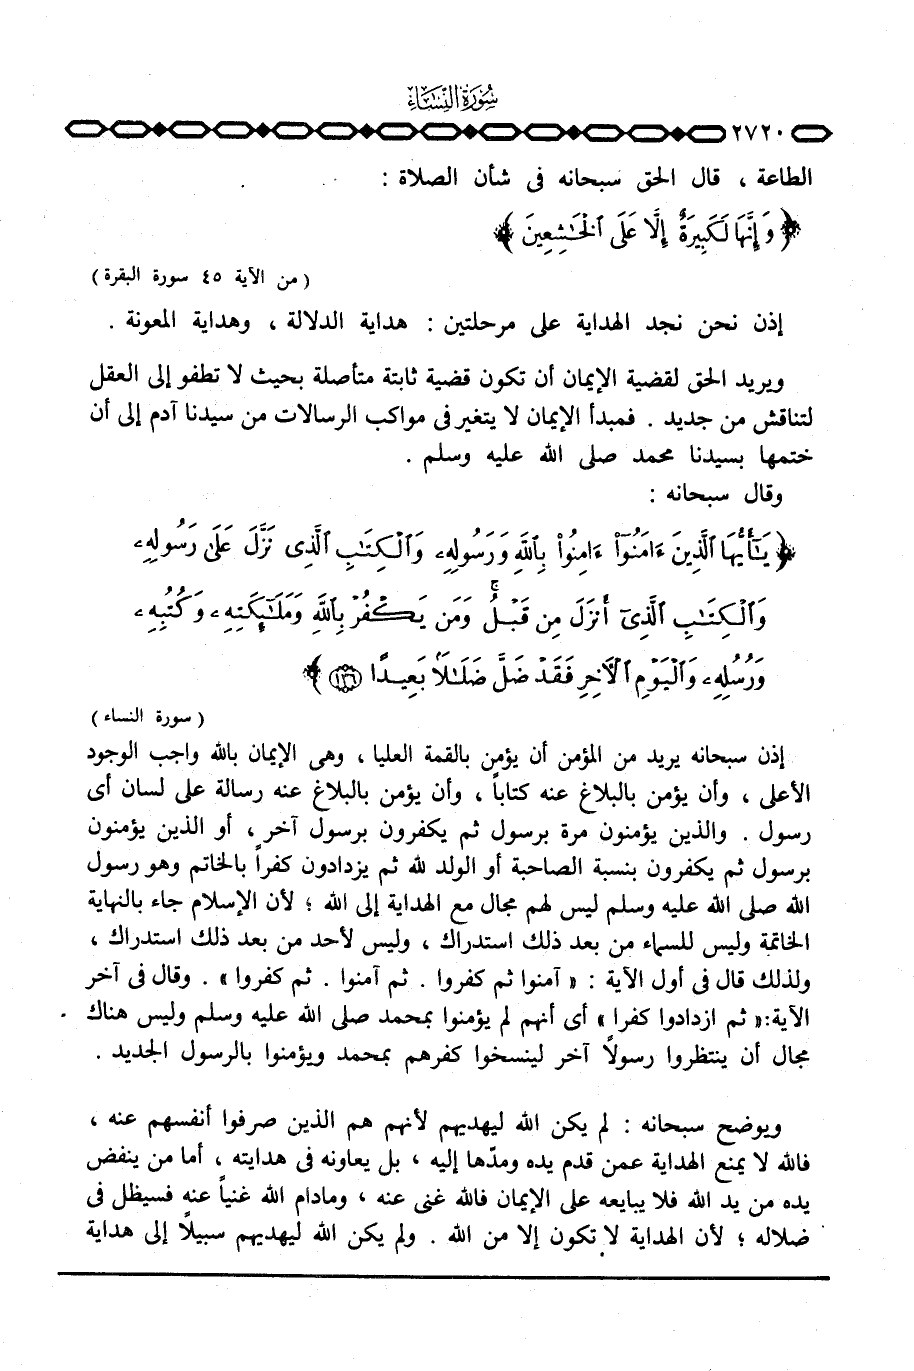 سُورَةُ النِّسَاء
٢٧٢٠
الطاعة ، قال الحق سبحانه فى شأن الصلاة :
﴿ وَإِنَّهَا لَكَبِيرَةٌ إِلَّا عَلَى ٱلْخَـٰشِعِينَ ﴾
( من الآية ٤٥ سورة البقرة )
إذن نحن نجد الهداية على مرحلتين : هداية الدلالة ، وهداية المعونة .
ويريد الحق لقضية الإيمان أن تكون قضية ثابتة متأصلة بحيث لا تطفو إلى العقل
لتناقش من جديد . فمبدأ الإيمان لا يتغير فى مواكب الرسالات من سيدنا آدم إلى أن
ختمها بسيدنا محمد صلى الله عليه وسلم .
وقال سبحانه :
﴿ يَـٰٓأَيُّهَا ٱلَّذِينَ ءَامَنُوٓا۟ ءَامِنُوا۟ بِٱللَّهِ وَرَسُولِهِۦ وَٱلْكِتَـٰبِ ٱلَّذِى نَزَّلَ عَلَىٰ رَسُولِهِۦ
وَٱلْكِتَـٰبِ ٱلَّذِىٓ أَنزَلَ مِن قَبْلُ ۚ وَمَن يَكْفُرْ بِٱللَّهِ وَمَلَـٰٓئِكَتِهِۦ وَكُتُبِهِۦ
وَرُسُلِهِۦ وَٱلْيَوْمِ ٱلْـَٔاخِرِ فَقَدْ ضَلَّ ضَلَـٰلًۢا بَعِيدًا ١٣٦ ﴾
( سورة النساء )
إذن سبحانه يريد من المؤمن أن يؤمن بالقمة العليا ، وهى الإيمان بالله واجب الوجود
الأعلى ، وأن يؤمن بالبلاغ عنه كتاباً ، وأن يؤمن بالبلاغ عنه رسالة على لسان أى
رسول . والذين يؤمنون مرة برسول ثم يكفرون برسول آخر ، أو الذين يؤمنون
برسول ثم يكفرون بنسبة الصاحبة أو الولد لله ثم يزدادون كفراً بالخاتم وهو رسول
الله صلى الله عليه وسلم ليس لهم مجال مع الهداية إلى الله ؛ لأن الإسلام جاء بالنهاية
الخاتمة وليس للسماء من بعد ذلك استدراك ، وليس لأحد من بعد ذلك استدراك ،
ولذلك قال فى أول الآية : « آمنوا ثم كفروا . ثم آمنوا . ثم كفروا » . وقال فى آخر
الآية:« ثم ازدادوا كفرا » أى أنهم لم يؤمنوا بمحمد صلى الله عليه وسلم وليس هناك
مجال أن ينتظروا رسولاً آخر لينسخوا كفرهم بمحمد ويؤمنوا بالرسول الجديد .
ويوضح سبحانه : لم يكن الله ليهديهم لأنهم هم الذين صرفوا أنفسهم عنه ،
فالله لا يمنع الهداية عمن قدم يده ومدّها إليه ، بل يعاونه فى هدايته ، أما من ينفض
يده من يد الله فلا يبايعه على الإيمان فالله غنى عنه ، ومادام الله غنياً عنه فسيظل فى
ضلاله ؛ لأن الهداية لا تكون إلا من الله . ولم يكن الله ليهديهم سبيلاً إلى هداية